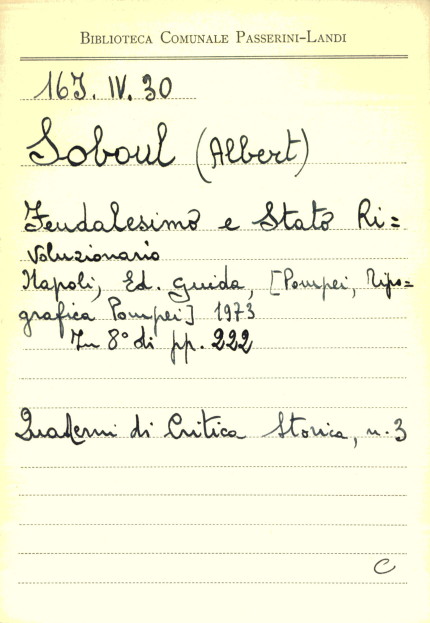 BIBLIOTECA COMUNALE PASSERINI-LANDI
16J. IV. 30
Soboul (Albert)
Feudalesimo e Stato Ri=
voluzionario
Napoli, Ed. Guida, [Pompei, Tipo=
grafica Pompei] 1973
In 8° di pp. 222
Quaderni di Critica Storica, n. 3
C